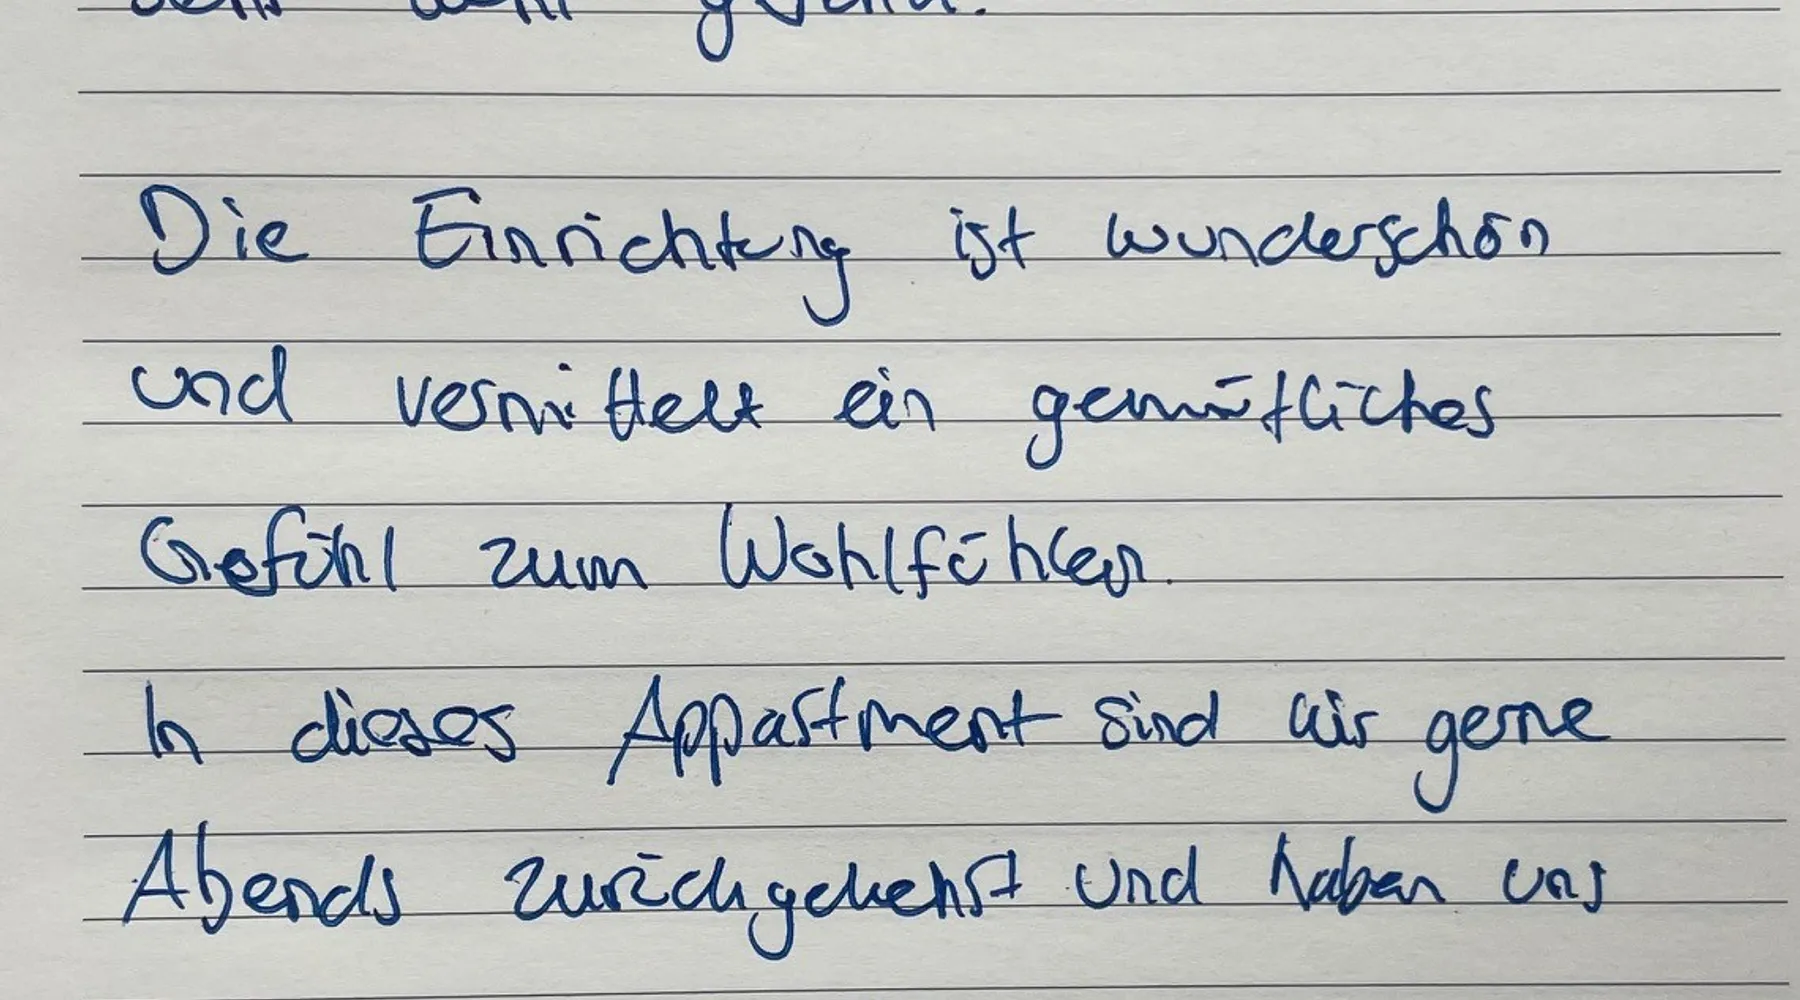 Die Einrichtung ist wunderschön
und vermittelt ein gemütliches
Gefühl zum Wohlfühlen.
In dieses Appartment sind wir gerne
Abends zurückgekehrt und haben uns